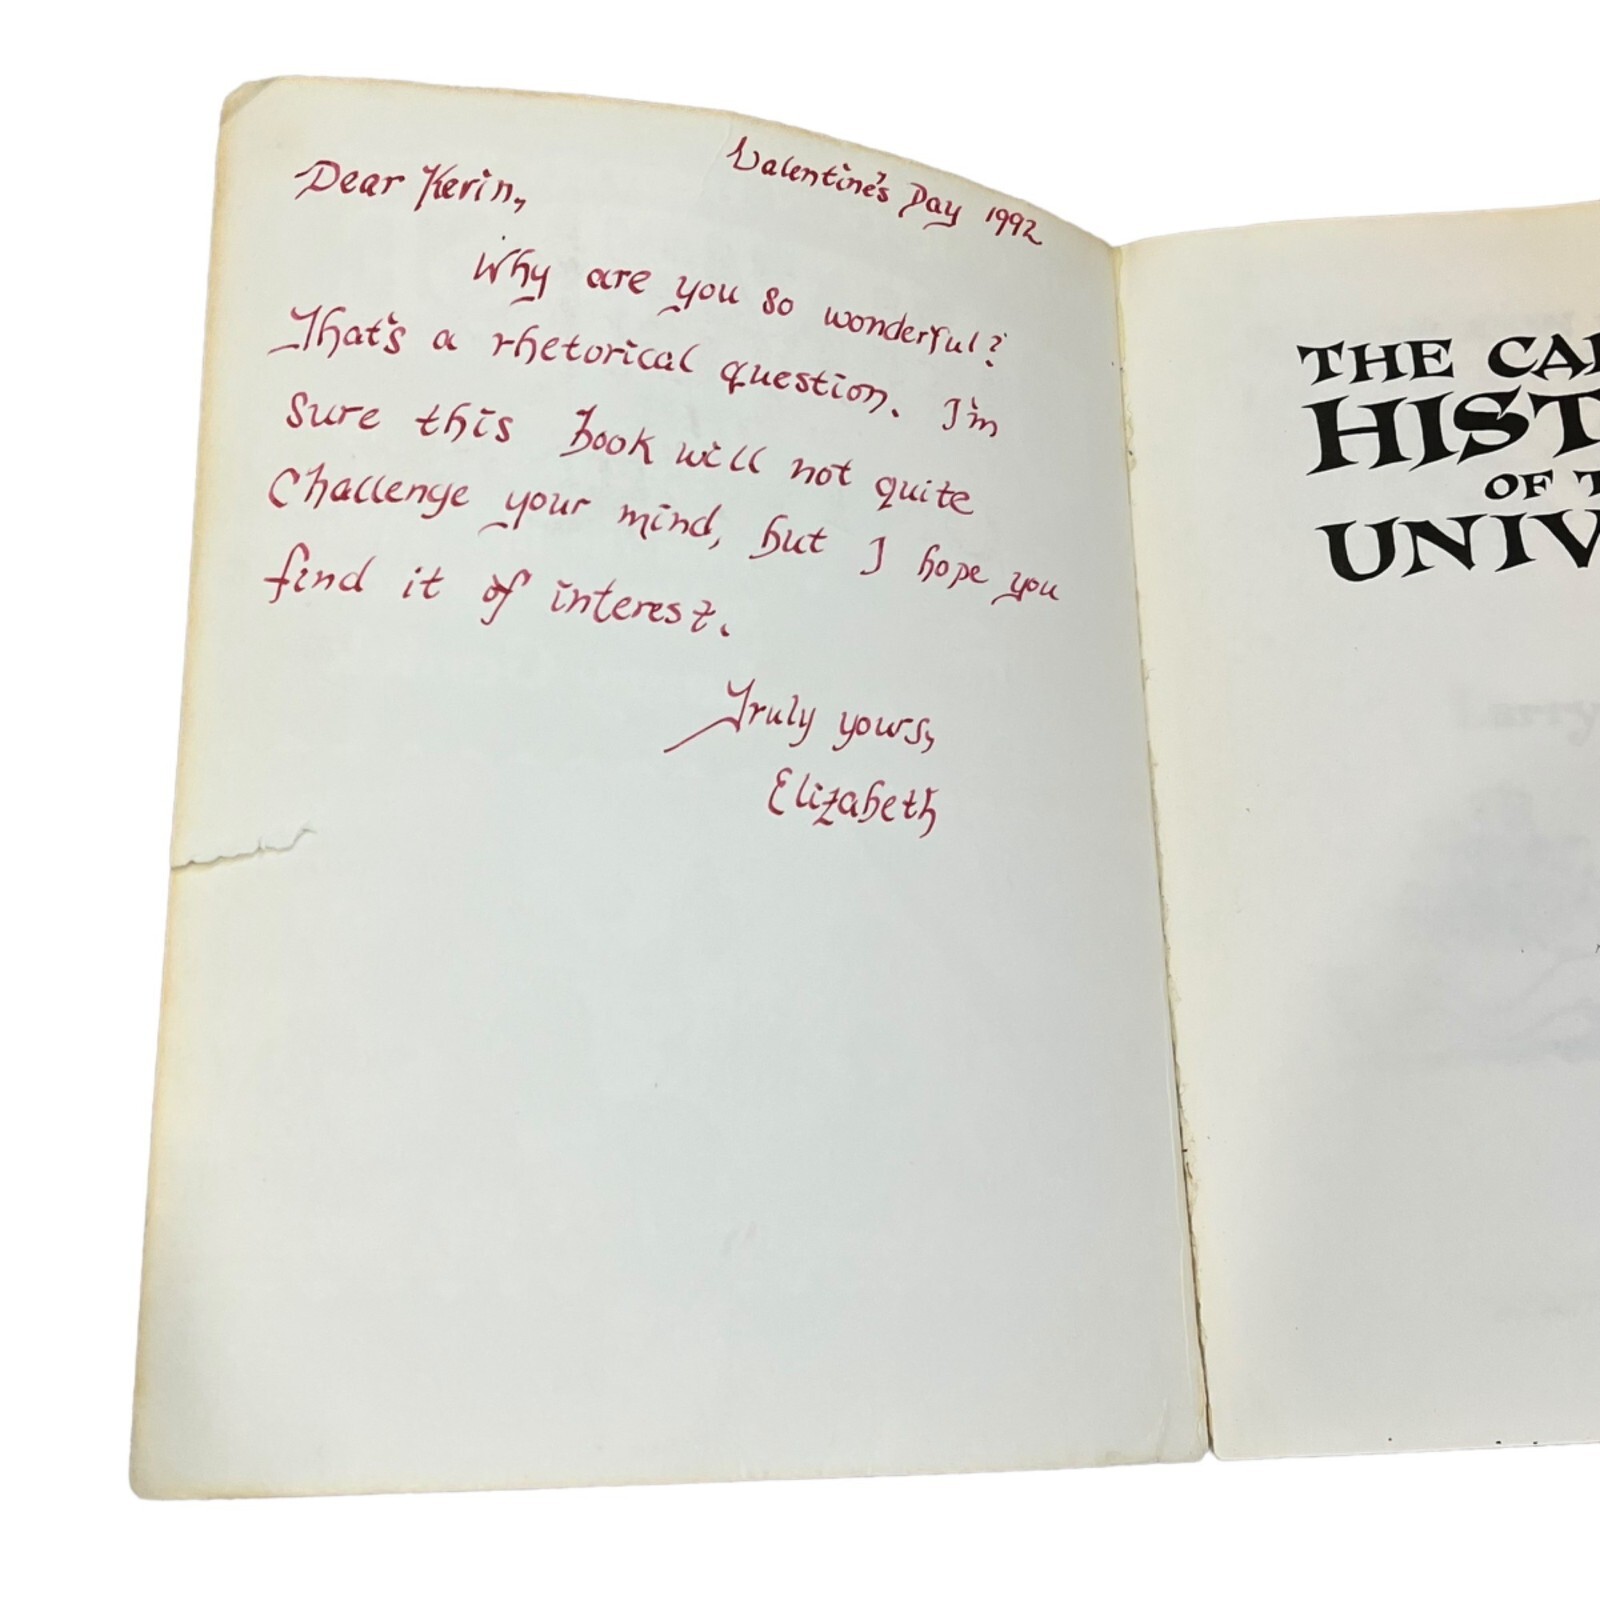 Valentine's Day 1992
Dear Kerin,
Why are you so wonderful?
That's a rhetorical question. I'm
sure this book will not quite
challenge your mind, but I hope you
find it of interest.
Truly yours,
Elizabeth
THE CAR
HIST
OF T
UNIV